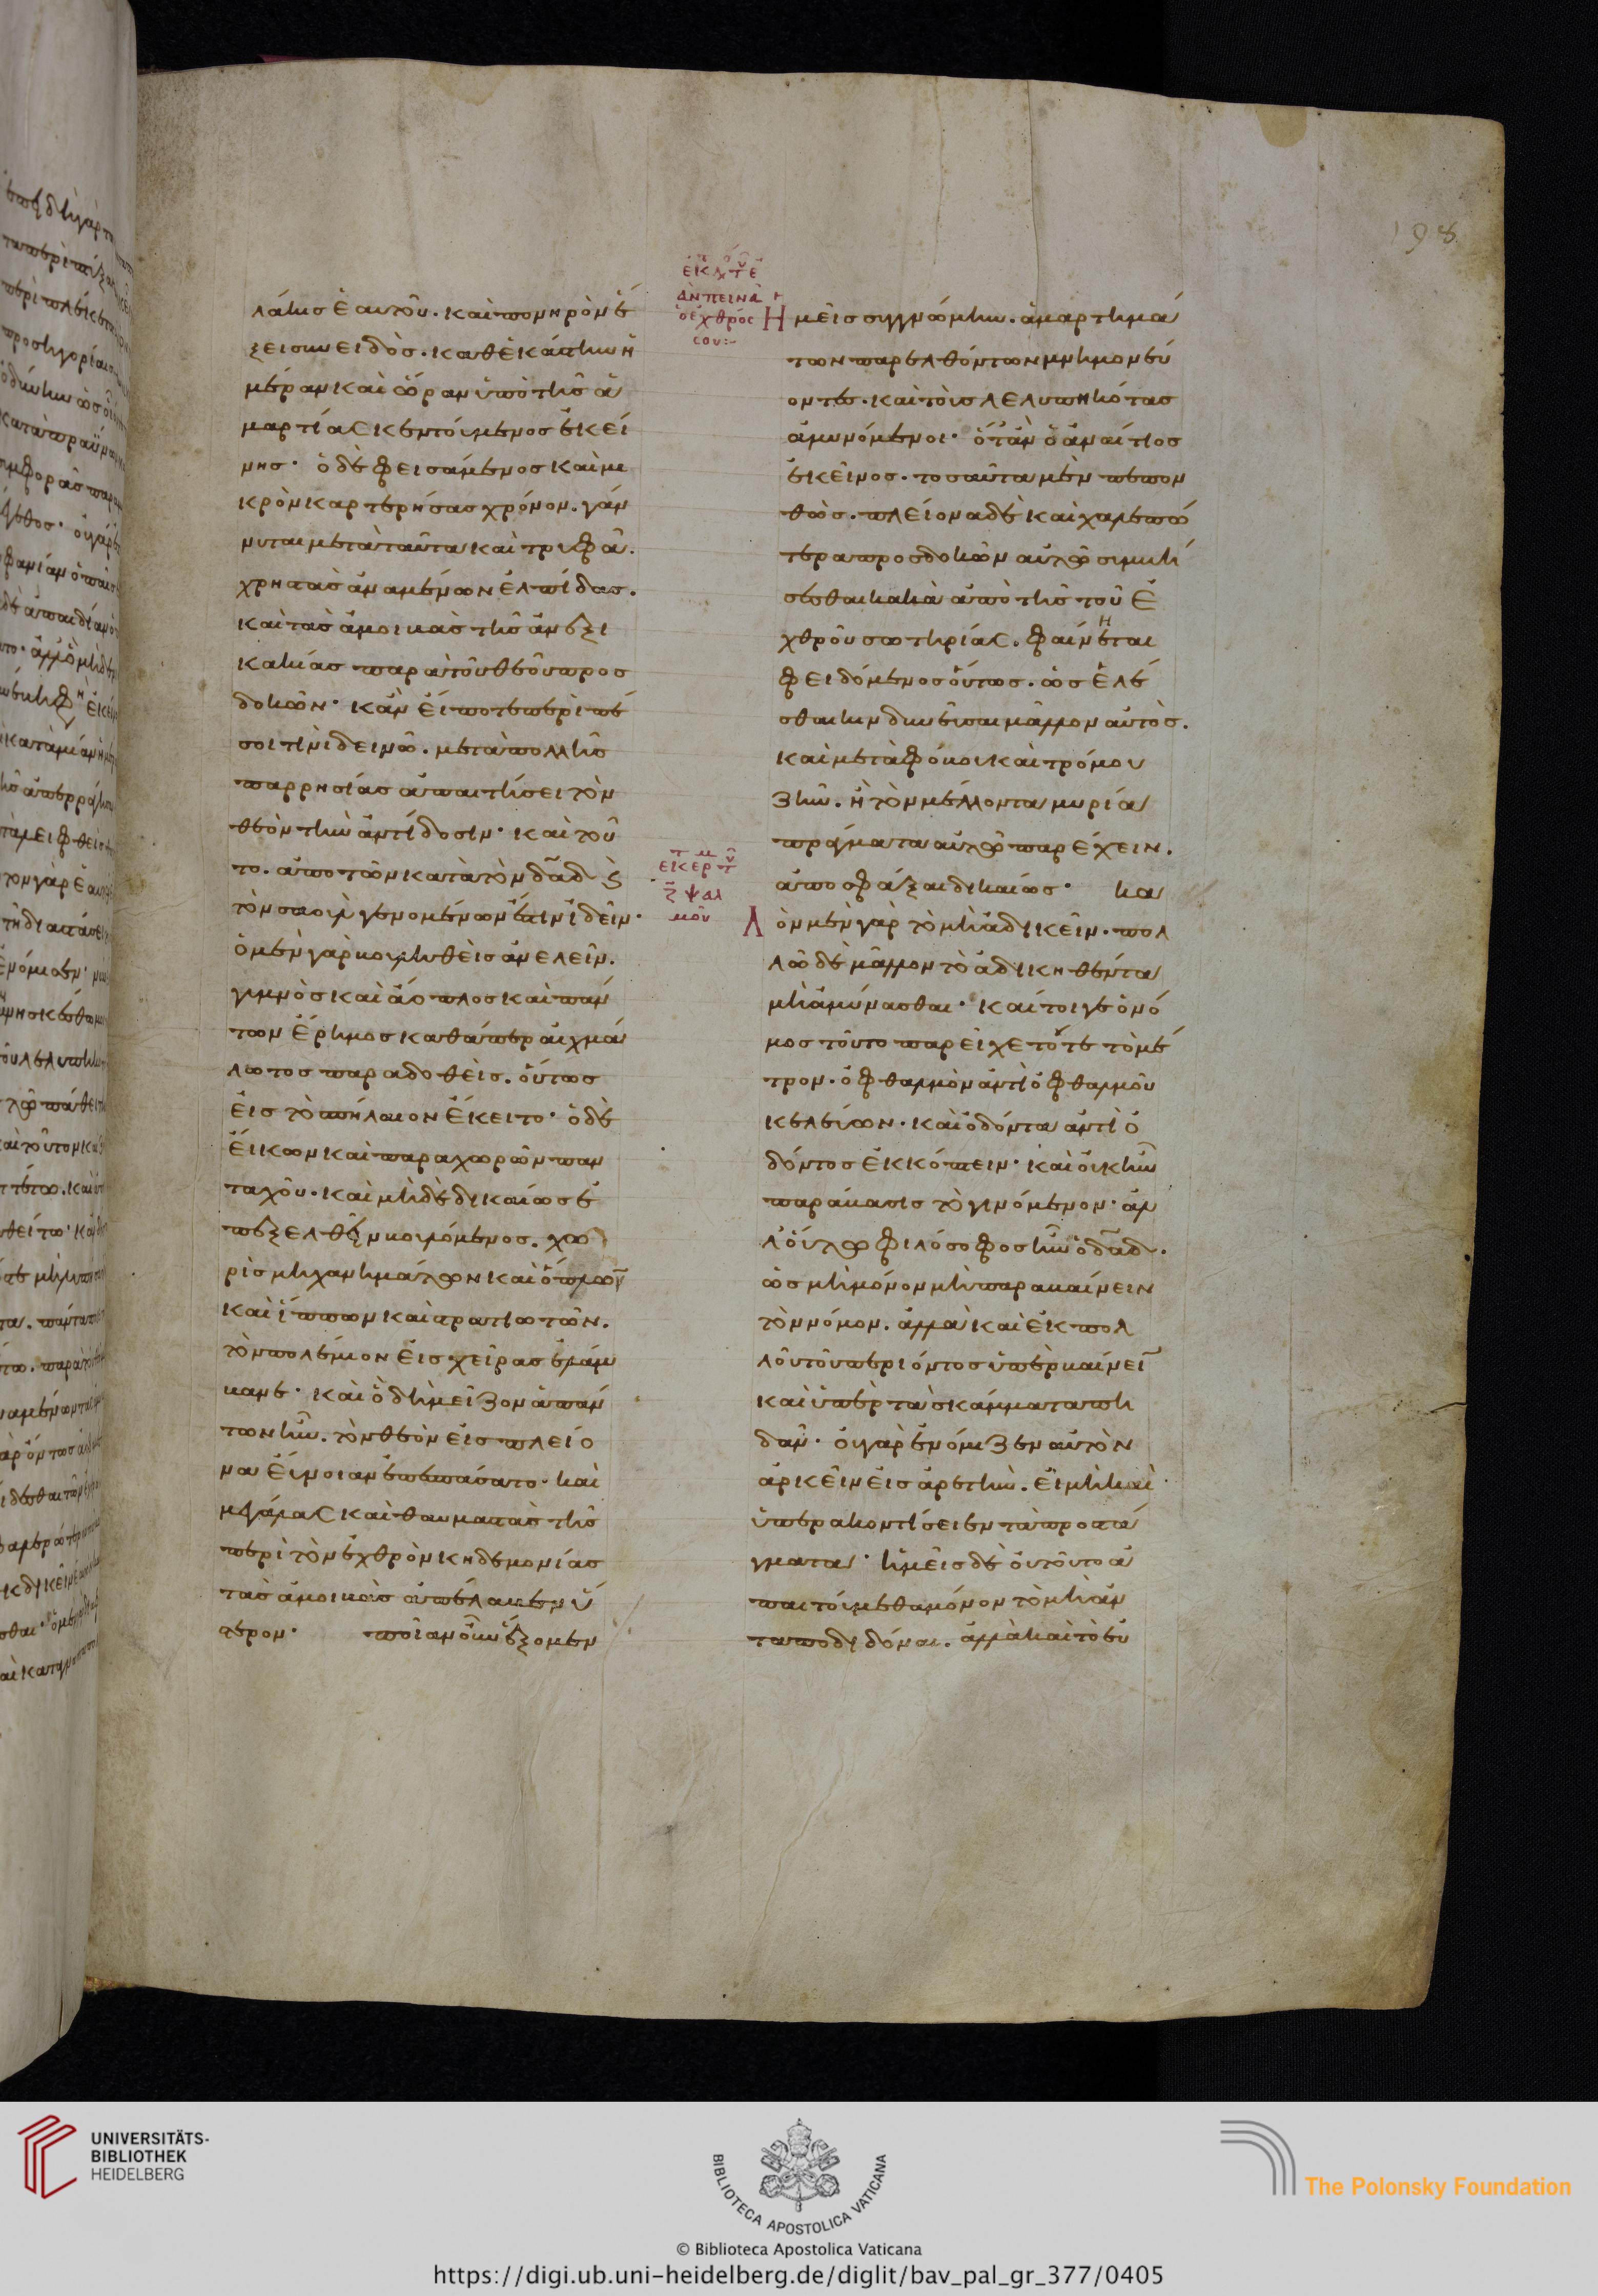 198
λάκισ ἑαυτοῦ. καὶ πονηρὸν ἕ
ξει συνειδὸσ. καθ ἑκάστην ἡ
μέραν καὶ ὥραν ὑπὸ τῆσ ἁ
μαρτίασ κεντούμενοσ ἐκεί
νησ· ὁ δὲ φεισάμενοσ καὶ μι
κρὸν καρτερήσασ χρόνον. γάν
νυται μετὰ ταῦτα καὶ τρυφᾶ.
χρηστὰσ ἀναμένων ἐλπίδασ.
καὶ τὰσ ἀμοιβὰσ τῆσ ἀνεξι
κακίασ παρὰ τοῦ θεοῦ προσ
δοκῶν· κἂν εἴποτε περιπέ
σοι τινὶ δεινῶ. μετὰ πολλῆσ
παρρησίασ ἀπαιτήσει τὸν
θεὸν τὴν ἀντίδοσιν· καὶ τοῦ
το. ἀπο τῶν κατὰ τὸν δᾱδ ϛ
τὸν σαοὺλ γενομένων ἔστιν ἰδεῖν·
ὁ μὲν γὰρ βουληθεὶσ ἀνελεῖν.
γυμνὸσ καὶ ἄοπλοσ καὶ πάν
των ἔρημοσ καθάπερ αἰχμά
λωτοσ παραδοθεὶσ. οὕτωσ
εἰσ τὸ σπήλαιον ἔκειτο· ὁ δὲ
εἴκων καὶ παραχωρῶν παν
ταχοῦ. καὶ μηδὲ δικαίωσ ἐ
πεξελθεῖν βουλόμενοσ. χω
ρὶσ μηχανημάτων καὶ ὅπλων
καὶ ἵππων καὶ στρατιωτῶν.
τὸν πολέμιον εἰσ χεῖρασ ἐλάμ
βανε· καὶ ὁ δὴ μεῖζον ἁπάν
των ἦν. τὸν θεὸν εἰσ πλείο
να εὔνοιαν ἐπεσπάσατο· καὶ
μεγάλασ καὶ θαυμαστὰσ τῆσ
περὶ τὸν ἐχθρὸν κηδεμονίασ
τὰσ ἀμοιβὰσ ἀπέλαβεν ὕ
στερον· ποίαν οὖν ἕξομεν
ἐκ λό τοῦ ἐ
ὰν πεινᾶ
ὁ ἐχθρόσ
σου:-
Ημεῖσ συγγνώμην. ἁμαρτημά
των παρελθόντων μνημονεύ
οντεσ. καὶ τοὺσ λελυπηκότασ
ἀμυνόμενοι· ὅταν ὁ ἀναίτιοσ
ἐκεῖνοσ. τοσαῦτα μὲν πεπον
θὼσ. πλείονα δὲ καὶ χαλεπώ
τερα προσδοκῶν αὐτῶ συμβή
σεσθαι κακὰ ἀπὸ τῆσ τοῦ ἐ
χθροῦ σωτηρίασ. φαίνηται
φειδόμενοσ οὕτωσ. ὡσ ἑλέ
σθαι κινδυνεῦσαι μᾶλλον αὐτὸσ.
καὶ μετὰ φόβου καὶ τρόμου
ζῆν. ἢ τὸν μέλλοντα μυρία
πράγματα αὐτῶ παρέχειν.
ἀποσφάξαι δικαίωσ· κα
εἰσ ἑρ τ
ζ̄ ψαλ
μὸν
Λὸν μὲν γὰρ τὸ μὴ ἀδικεῖν. πολ
λῶ δὲ μᾶλλον τὸ ἀδικηθέντα
μὴ ἀμύνασθαι· καίτοιγε ὁ νό
μοσ τοῦτο παρεῖχε τότε τὸ μέ
τρον. ὀφθαλμὸν ἀντὶ ὀφθαλμοῦ
κελεύων. καὶ ὀδόντα ἀντὶ ὀ
δόντοσ ἐκκόπτειν· καὶ οὐκ ἦν
παράβασισ τὸ γινόμενον· ἀλ
λ οὕτω φιλόσοφοσ ἦν ὁ δᾱδ.
ὡσ μὴ μόνον μὴ παραβαίνειν
τὸν νόμον. ἀλλὰ καὶ ἐκ πολ
λοῦ τοῦ περιόντοσ ὑπερβαίνειν
καὶ ὑπὲρ τὰ σκάμματα πη
δᾶν· οὐ γὰρ ἐνόμιζεν αὐτὸν
ἀρκεῖν εἰσ ἀρετὴν. εἰ μὴ καὶ
ὑπερακοντίσειεν τὰ προστά
γματα· ἡμεῖσ δὲ οὐ τοῦτο ἀ
παιτούμεθα μόνον τὸ μὴ ἀν
ταποδιδόναι. ἀλλὰ καὶ τὸ εὐ
UNIVERSITÄTS-
BIBLIOTHEK
HEIDELBERG
BIBLIOTECA APOSTOLICA VATICANA
© Biblioteca Apostolica Vaticana
The Polonsky Foundation
https://digi.ub.uni-heidelberg.de/diglit/bav_pal_gr_377/0405